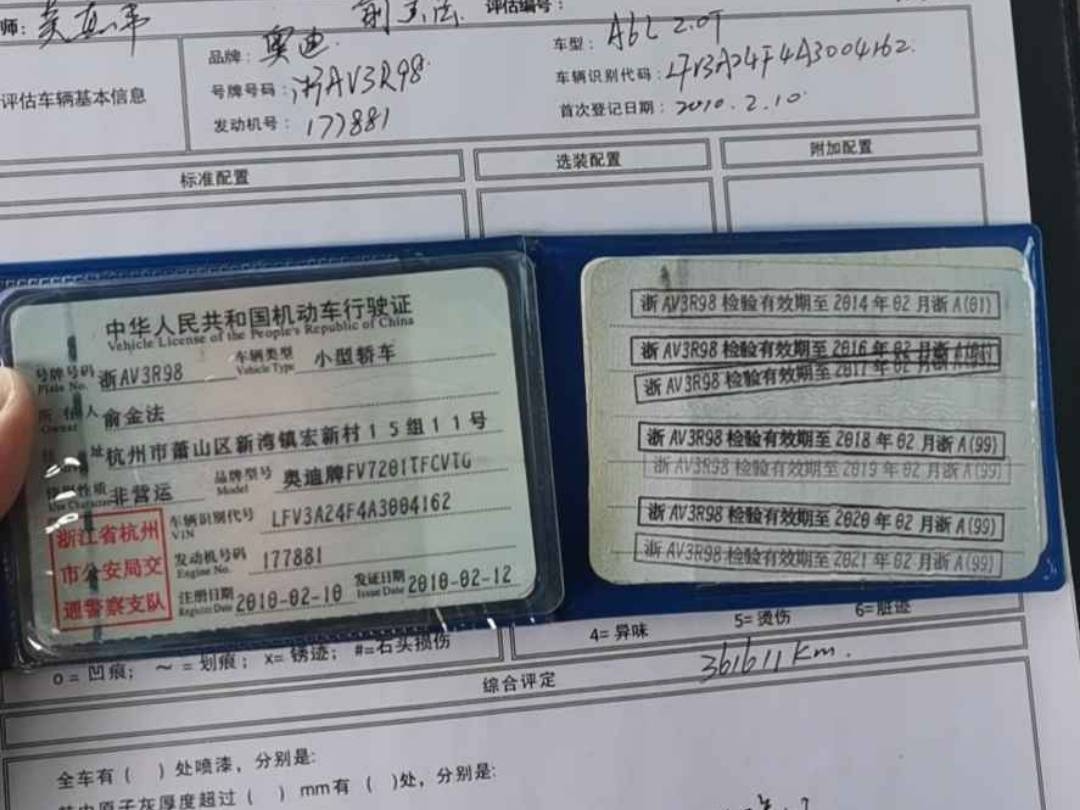 师：
评估编号：
品牌：奥迪
车型：A6L 2.0T
评估车辆基本信息
号牌号码：浙AV3R98
车辆识别代码：LFV3A24F4A3004162
发动机号：177881
首次登记日期：2010.2.10
标准配置
选装配置
附加配置
中华人民共和国机动车行驶证
Vehicle License of the People's Republic of China
号牌号码 浙AV3R98 车辆类型 小型轿车
Plate No. Vehicle Type
所有人 俞金法
Owner
住址 杭州市萧山区新湾镇宏新村15组11号
使用性质 非营运 品牌型号 奥迪牌FV7201TFCVTG
Use Character Model
车辆识别代号 LFV3A24F4A3004162
VIN
发动机号码 177881
Engine No.
注册日期 2010-02-10 发证日期 2010-02-12
Register Date Issue Date
浙江省杭州
市公安局交
通警察支队
浙AV3R98 检验有效期至 2014年02月浙A(01)
浙AV3R98 检验有效期至 2016年02月浙A
浙AV3R98 检验有效期至 2017年02月浙A
浙AV3R98 检验有效期至 2018年02月浙A(99)
浙AV3R98 检验有效期至 2019年02月浙A(99)
浙AV3R98 检验有效期至 2020年02月浙A(99)
浙AV3R98 检验有效期至 2021年02月浙A(99)
o=凹痕；～=划痕；x=锈迹；#=石头损伤
4=异味 5=烫伤 6=脏迹
综合评定
361611km.
全车有（ ）处喷漆，分别是：
原子灰厚度超过（ ）mm有（ ）处，分别是：